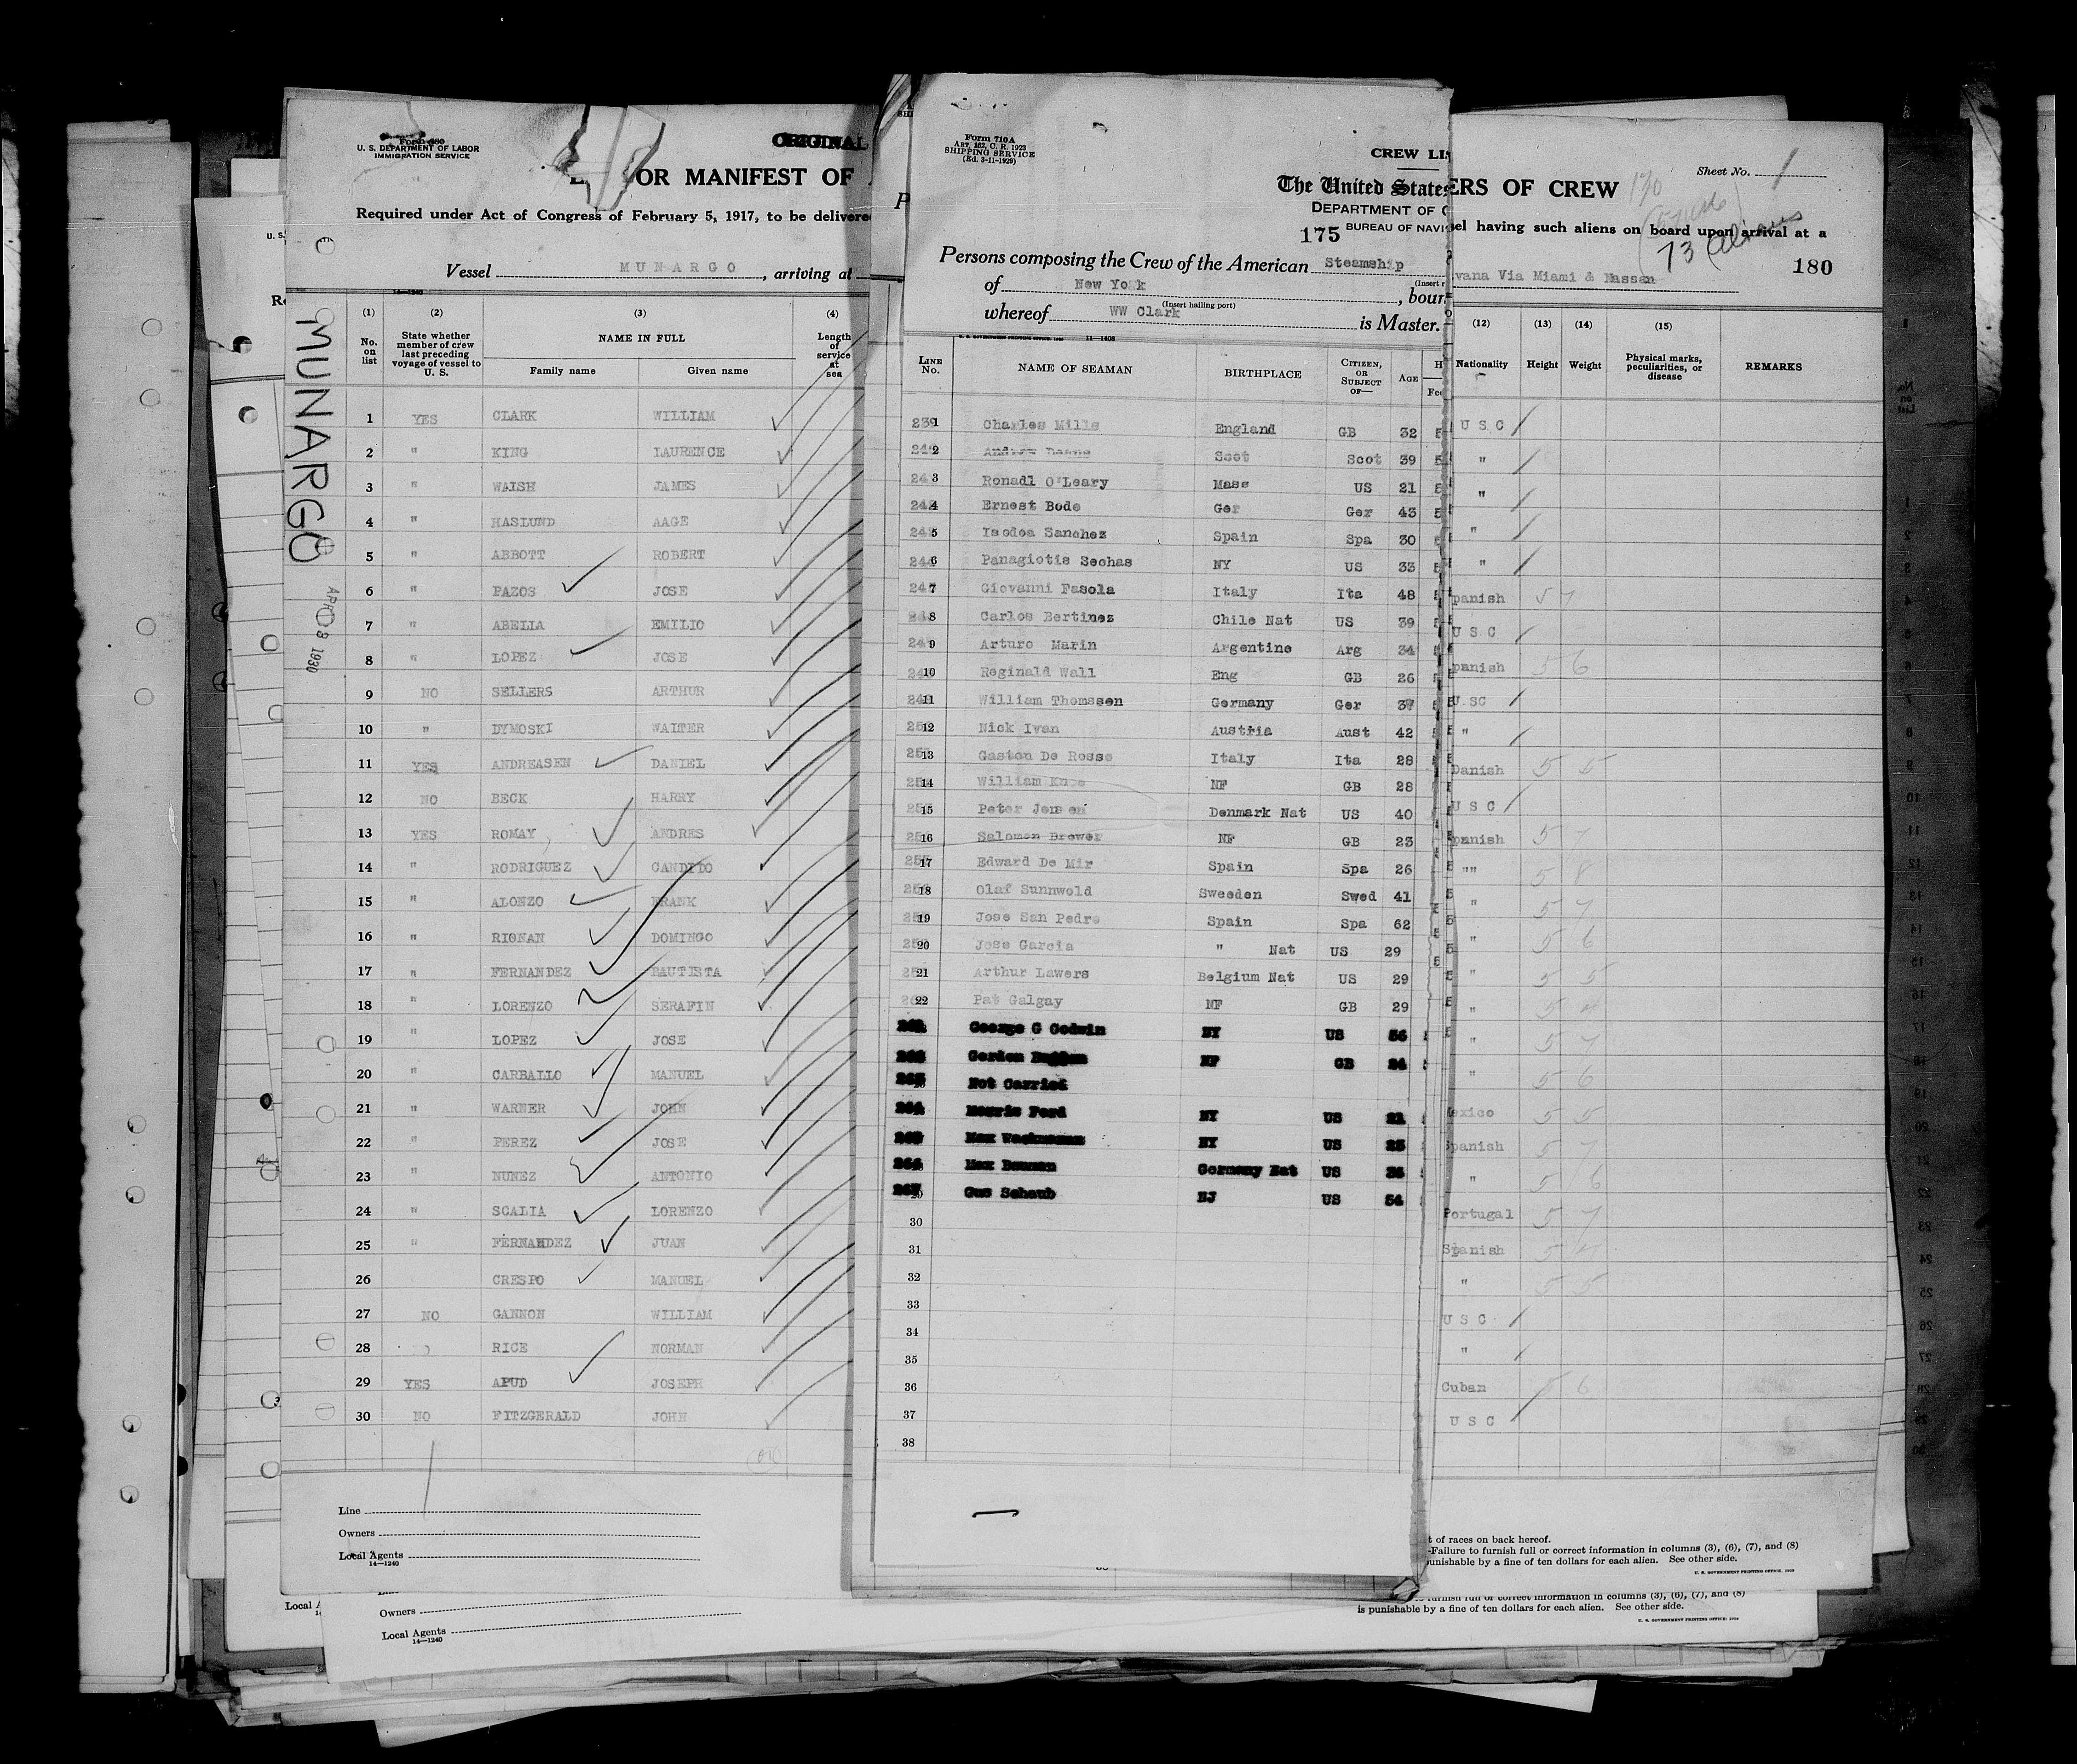 Form 680
U. S. DEPARTMENT OF LABOR
IMMIGRATION SERVICE
ORIGINAL
OR MANIFEST OF
Required under Act of Congress of February 5, 1917, to be delivere
Vessel MUNARGO, arriving at
MUNARGO
APR 8 1930
(1) (2) (3) (4)
No. on list
State whether member of crew last preceding voyage of vessel to U. S.
NAME IN FULL
Family name Given name
Length of service at sea
1 YES CLARK WILLIAM
2 " KING LAURENCE
3 " WALSH JAMES
4 " HASLUND AAGE
5 " ABBOTT ROBERT
6 " PAZOS JOSE
7 " ABELIA EMILIO
8 " LOPEZ JOSE
9 NO SELLERS ARTHUR
10 " DYMOSKI WALTER
11 YES ANDREASEN DANIEL
12 NO BECK HARRY
13 YES ROMAY ANDRES
14 " RODRIGUEZ CANDIDO
15 " ALONZO FRANK
16 " RIONAN DOMINGO
17 " FERNANDEZ BAUTISTA
18 " LORENZO SERAFIN
19 " LOPEZ JOSE
20 " CARBALLO MANUEL
21 " WARNER JOHN
22 " PEREZ JOSE
23 " NUNEZ ANTONIO
24 " SCALIA LORENZO
25 " FERNANDEZ JUAN
26 CRESPO MANUEL
27 NO GANNON WILLIAM
28 RICE NORMAN
29 YES APUD JOSEPH
30 NO FITZGERALD JOHN
Line
Owners
Local Agents
14—1240
Owners
Local Agents
14—1240
Form 710A
ART. 262, C. R. 1923
SHIPPING SERVICE
(Ed. 3-11-1929)
CREW LIS
The United States
DEPARTMENT OF C
BUREAU OF NAVI
175
Persons composing the Crew of the American Steamship
of New Yo k, boun
(Insert hailing port)
whereof WW Clark is Master.
11—1408
LINE No. NAME OF SEAMAN BIRTHPLACE CITIZEN, OR SUBJECT OF— AGE
1 Charles Mills England GB 32
2 Scot Scot 39
3 Ronadl O'Leary Mass US 21
4 Ernest Bode Ger Ger 43
5 Isodoa Sanchez Spain Spa 30
6 Panagiotis Sechas NY US 33
7 Giovanni Fasola Italy Ita 48
8 Carlos Bertinez Chile Nat US 39
9 Arturo Marin Argentine Arg 34
10 Reginald Wall Eng GB 26
11 William Thomssen Germany Ger 37
12 Nick Ivan Austria Aust 42
13 Gaston De Rosso Italy Ita 28
14 William NF GB 28
15 Peter Jensen Denmark Nat US 40
16 Salomon Brewer NF GB 23
17 Edward De Mir Spain Spa 26
18 Olaf Sunnwold Sweeden Swed 41
19 Jose San Pedro Spain Spa 62
20 Jose Garcia " Nat US 29
21 Arthur Lawers Belgium Nat US 29
22 Pat Galgay NF GB 29
George G Godwin NY US 56
Gordon NF GB 24
Not Carried
Morris Ford NY US 21
Max NY US 25
Max Bauman Germany Nat US
Gus Schaub NJ US 54
30
31
32
33
34
35
36
37
38
ERS OF CREW
Sheet No. 1
sel having such aliens on board upon arrival at a
73 aliens
180
vana Via Miami & Nassau
(12) (13) (14) (15)
Nationality Height Weight Physical marks, peculiarities, or disease REMARKS
U S C
"
"
"
"
panish 5 7
U S C
panish 5 6
U.SC
"
Danish 5 5
U S C
panish 5 7
"" 5 8
" 5 7
" 5 6
" 5 5
"
" 5 7
" 5 6
exico 5 5
Spanish 5 7
" 5 6
Portugal 5 7
Spanish
" 5 5
U S C
"
Cuban
U S C
t of races on back hereof.
-Failure to furnish full or correct information in columns (3), (6), (7), and (8)
unishable by a fine of ten dollars for each alien. See other side.
U. S. GOVERNMENT PRINTING OFFICE
furnish full or correct information in columns (3), (6), (7), and (8)
is punishable by a fine of ten dollars for each alien. See other side.
U. S. GOVERNMENT PRINTING OFFICE